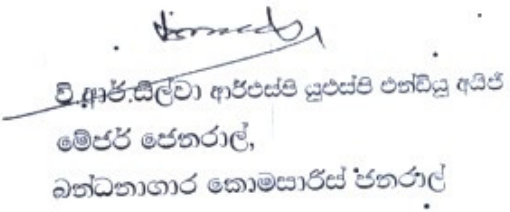 වී.ආර්.සිල්වා ආර්එස්පී යූඑස්පී එන්ඩීයූ අයිජී
මේජර් ජෙනරාල්,
බන්ධනාගාර කොමසාරිස් ජනරාල්